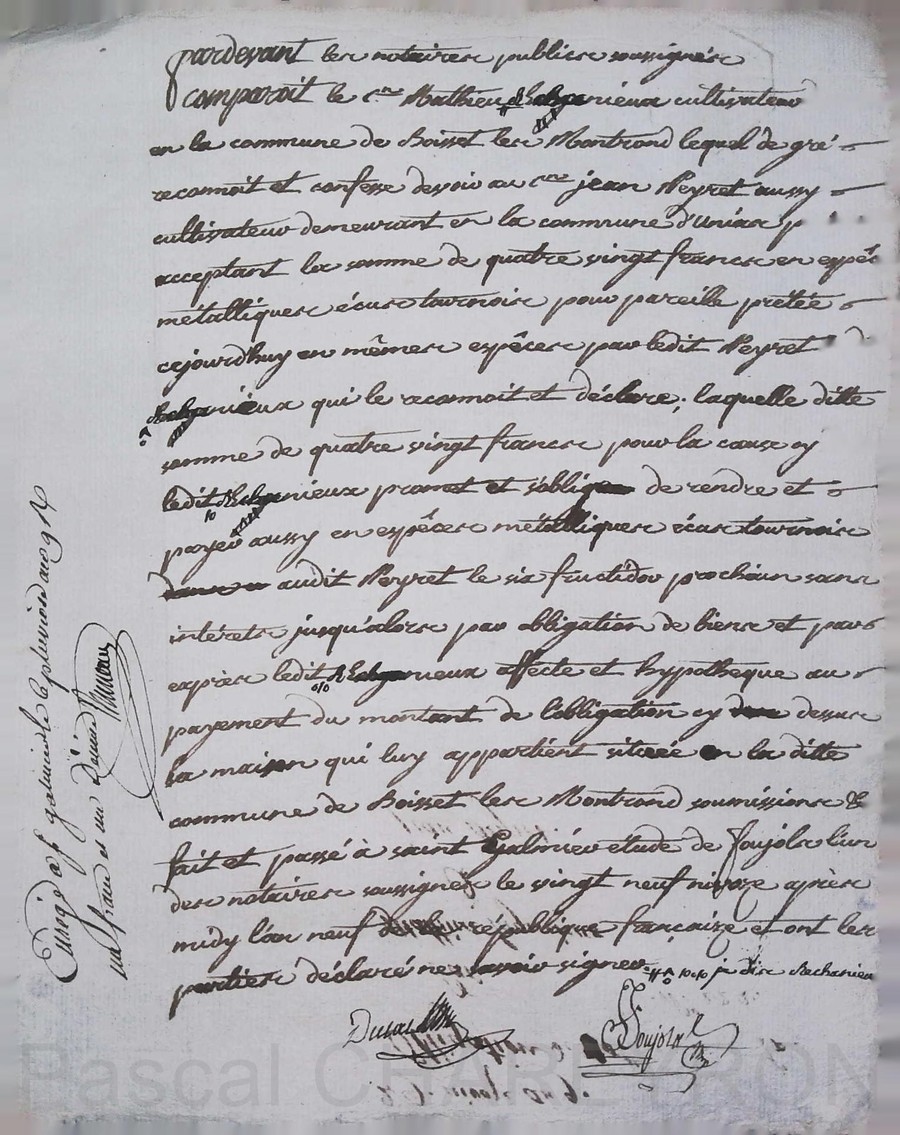 pardevant les notaires publics soussignés
comparoit le c.ne Mathieu cultivateur
en la commune de Boisset les Montrond lequel de gré
reconnoit et confesse devoir au c.ne jean Peyret aussy
cultivateur demeurant en la commune d'Unias
acceptant la somme de quatre vingt francs en espéc
métalliques écus tournois pour pareille prêtée
cejourd'huy en mêmes espêces par ledit Peyret
qui le reconnoit et déclare; laquelle ditte
somme de quatre vingt francs pour la cause cy
ledit promet et s'oblige de rendre et
payer aussy en espêces métalliques écus tournois
audit Peyret le six fructidor prochain sans
intérets jusqu'alors par obligation de biens et par
exprès ledit affecte et hypotheque au
payement du montant de l'obligation cy dessus
la maison qui luy appartient située en la ditte
commune de Boisset les Montrond soumissions &
fait et passé à saint Galmier étude de Joujols l'un
des notaires soussignés le vingt neuf nivoze après
midy l'an neuf république française et ont les
parties déclaré ne savoir signer je dis Rechanieu
Joujols
Enrgé à galmier le pluviose an 9
un franc et un décime
Pascal CHAMBETRON